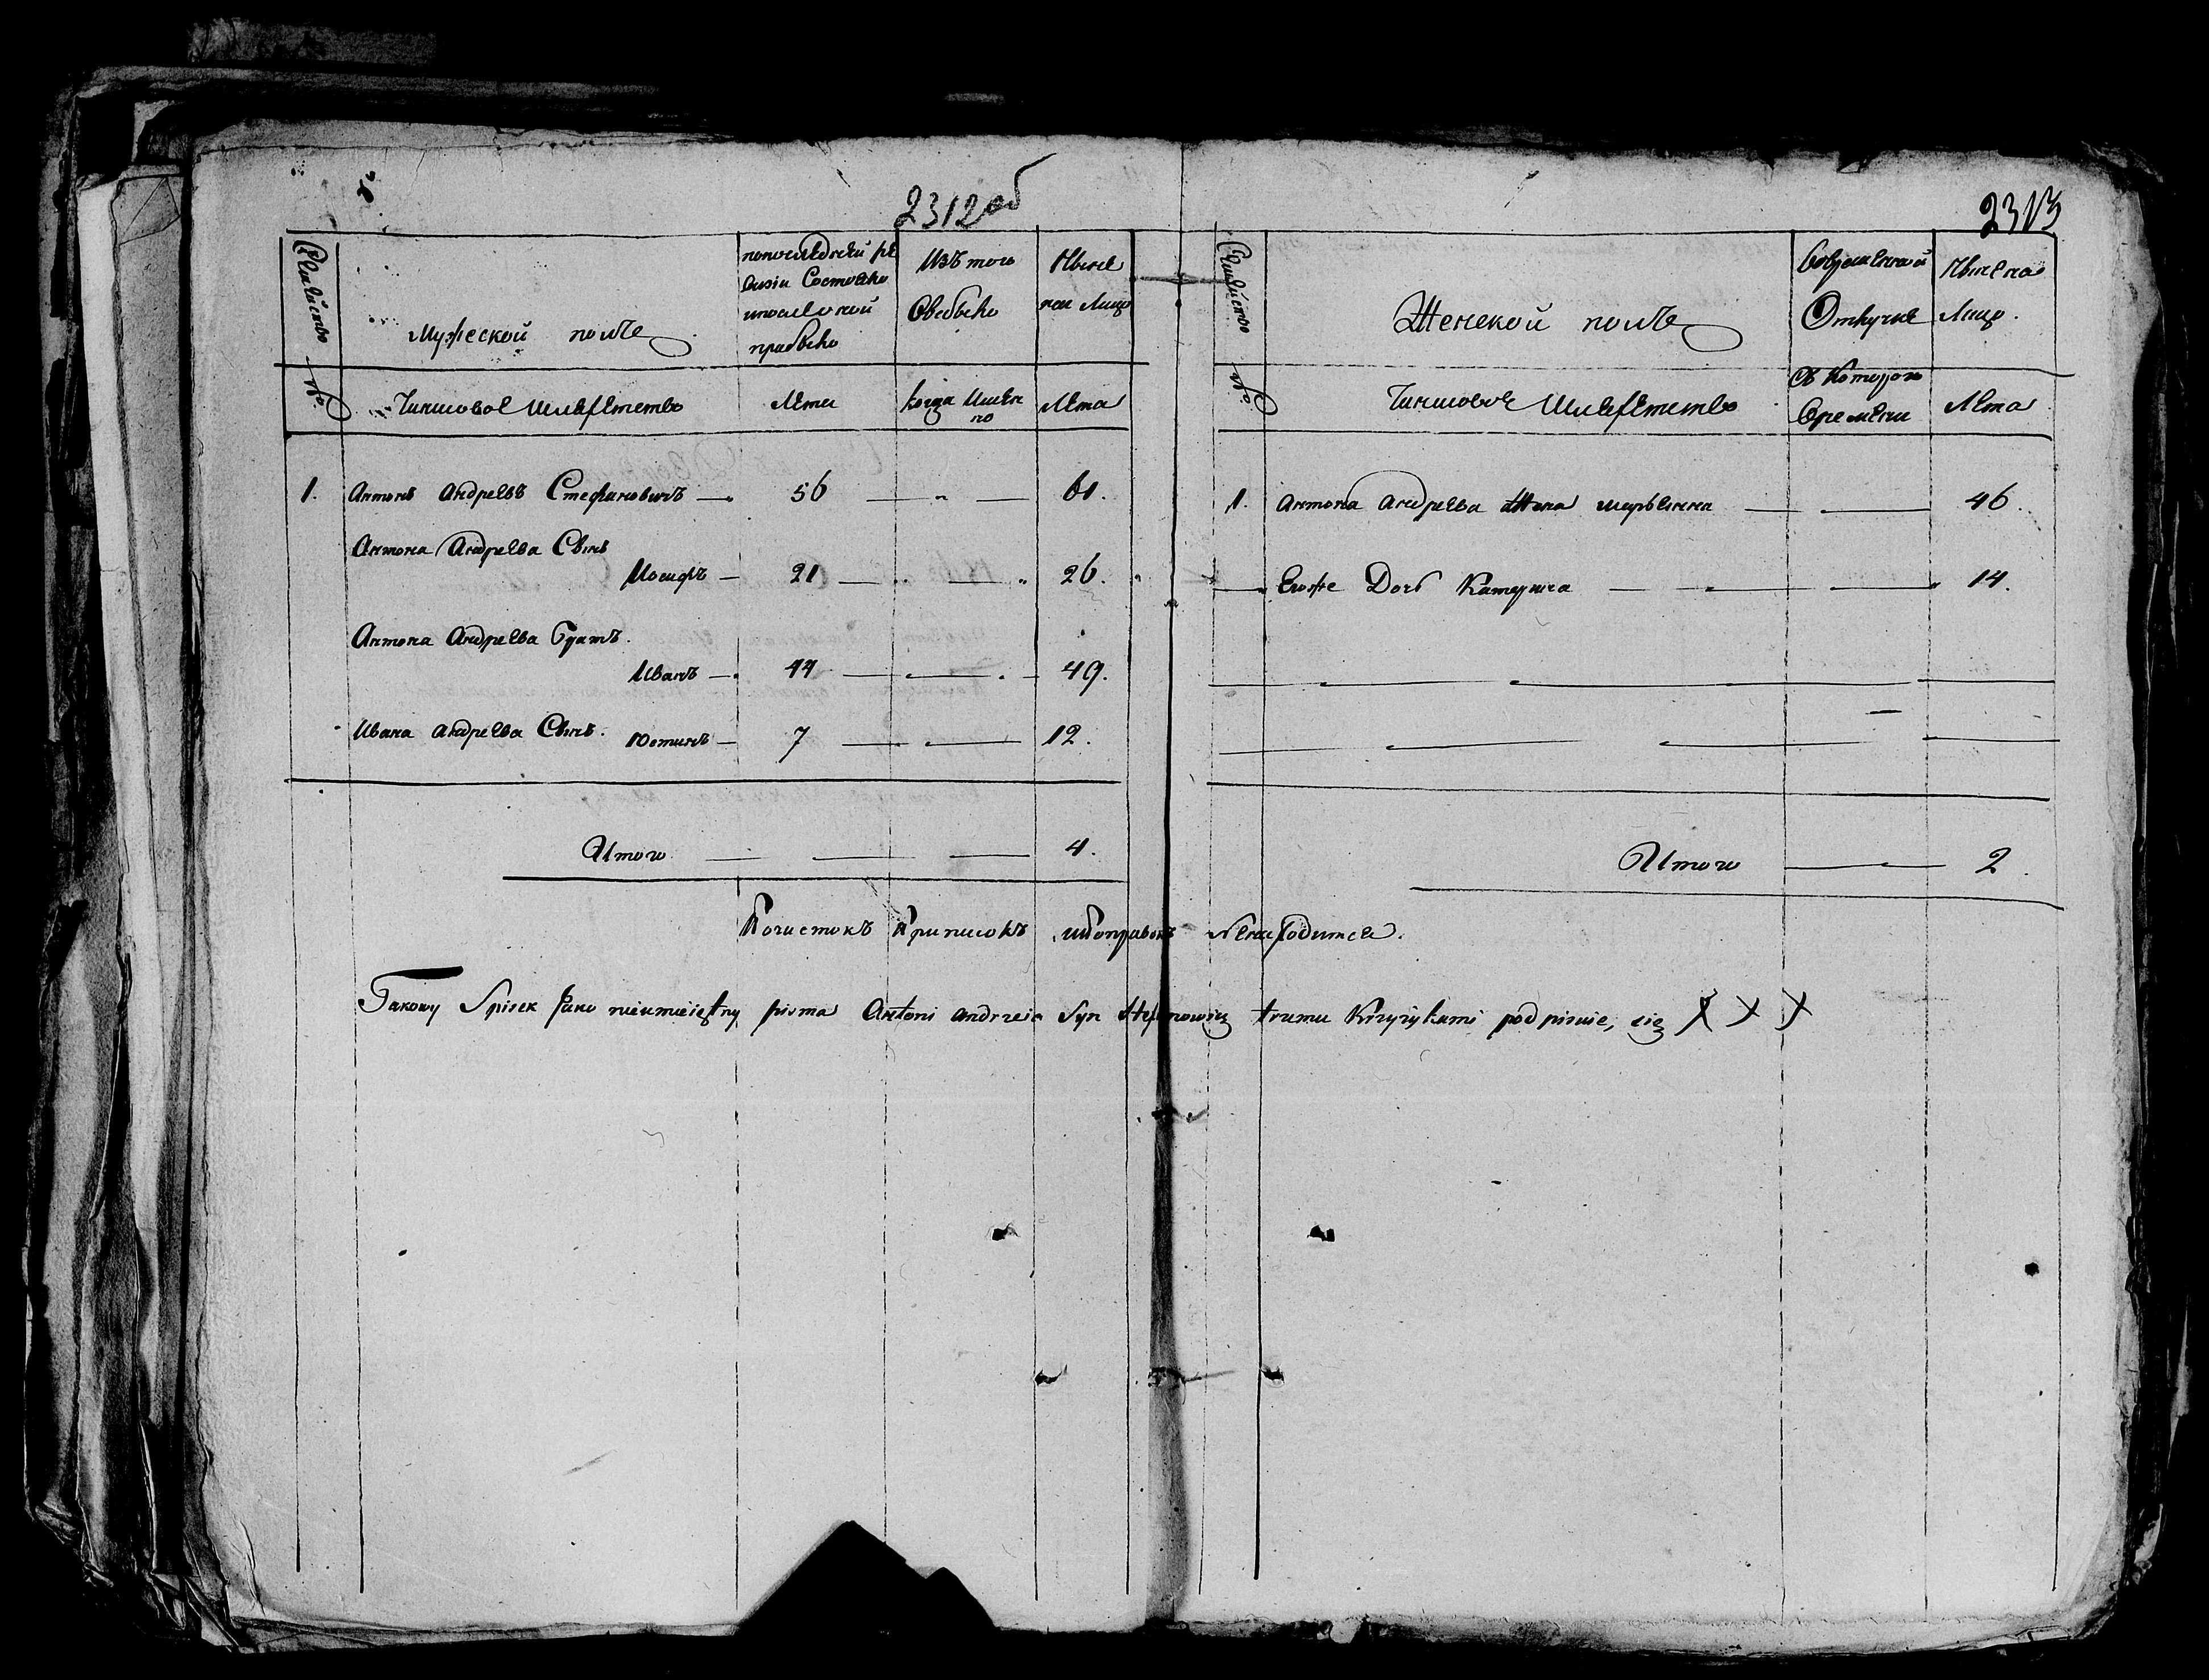 2312 об
Семейство
Мужеской полъ
по последней ре
визіи Состояло
и после оной
прибыло
Изъ того
Овыбыло
Ныне
на Лицо
№
Чиншовое Шляхетство
Лета
когда Имен
но
Лета
1. Антонъ Андреевъ Стефановичъ — 56 — „ — 61.
Антона Андреева Сынъ
Иосифъ — 21 — „ 26.
Антона Андреева Братъ.
Иванъ — 44 — 49.
Ивана Андреева Сынъ. Юстинъ — 7 — 12.
Итого — 4.
2313
Семейство
Женской полъ
Вовременной
Отлучке
Ныне на
Лицо.
№
Чиншовое Шляхетство
Съ Которого
Времени
Лета
1. Антона Андреева Жена Марьянна — 46.
Егоже Дочь Катерина — 14.
Итого — 2.
Почистокъ Приписокъ и Поправокъ Ненаходится.
Takowy Spisek jako nieumieiętny pisma Antoni Andrzeia Syn Stefanowicz trzema Krzyżykami podpisuie się X X X